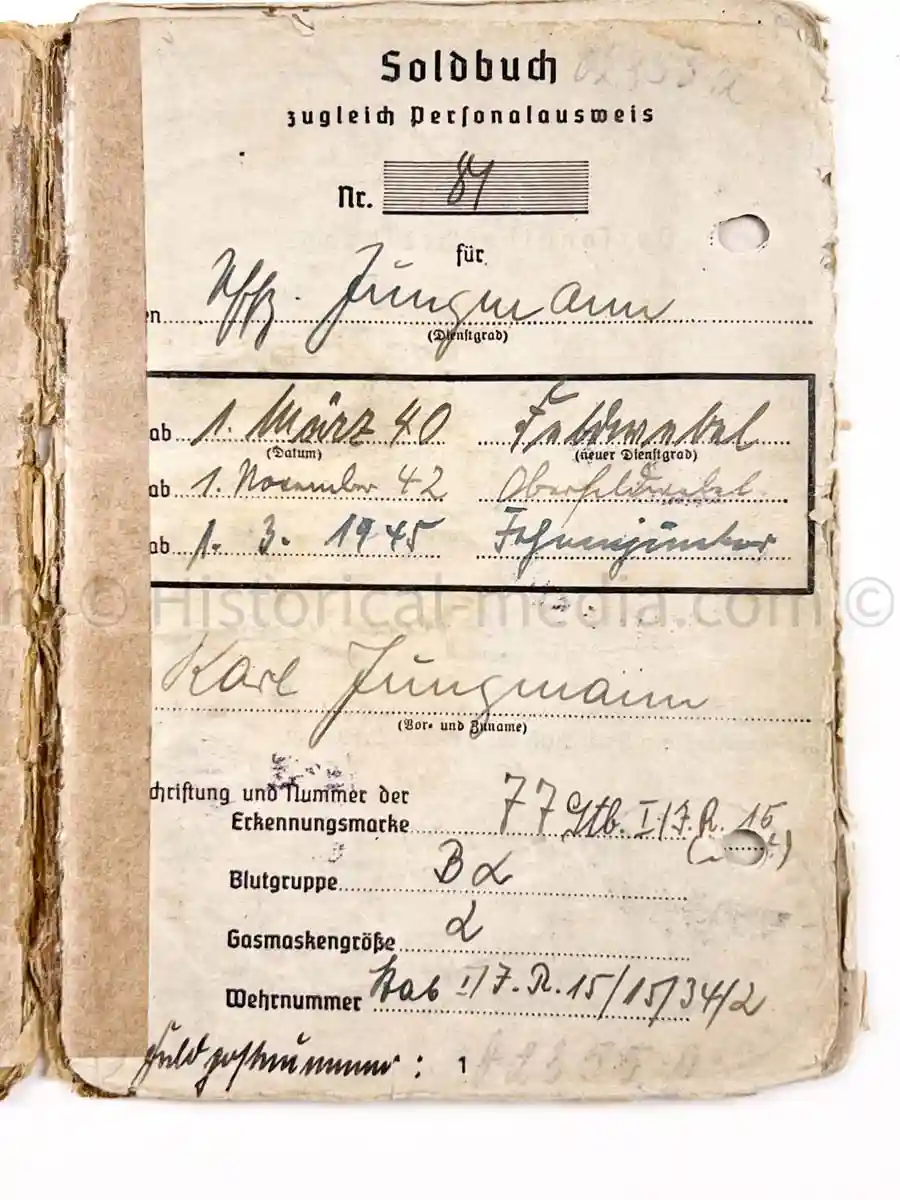 Soldbuch
zugleich Personalausweis
Nr. 81
für
en Uffz. Jungmann
(Dienstgrad)
ab 1. März 40 Feldwebel
(Datum) (neuer Dienstgrad)
ab 1. November 42 Oberfeldwebel
ab 1. 3. 1945 Fahnenjunker
© Historical-media.com ©
Karl Jungmann
(Vor- und Zuname)
chriftung und Nummer der
Erkennungsmarke 77 Stb. I/J.R. 15
Blutgruppe B
Gasmaskengröße 2
Wehrnummer Stab I/J.R.15/15/34/2
Feldpostnummer: 1